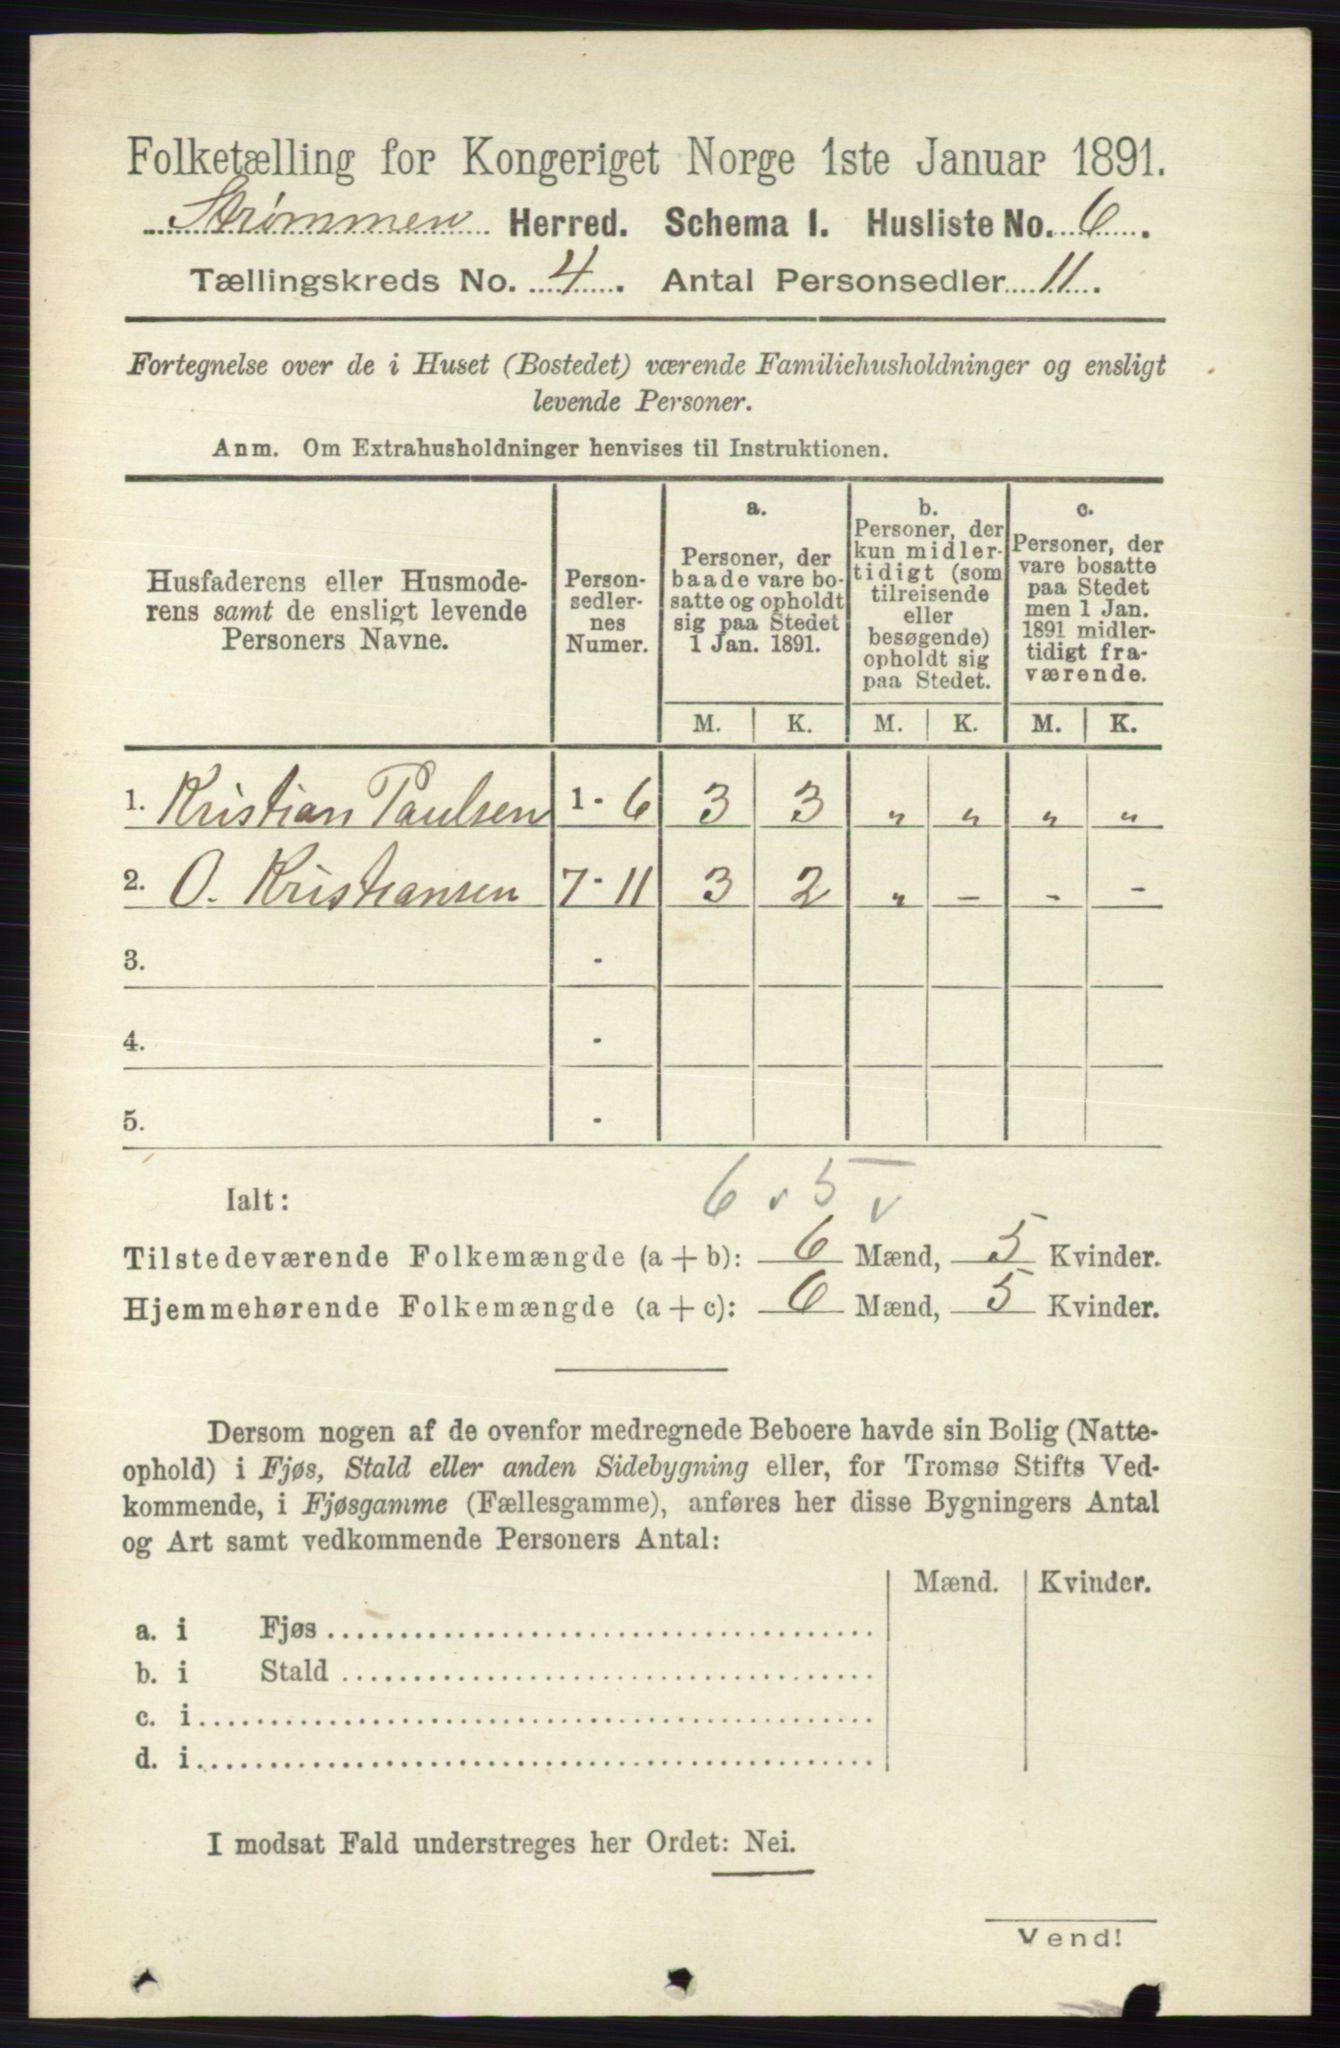 Folketælling for Kongeriget Norge 1ste Januar 1891.
Strømmen Herred. Schema I. Husliste No. 6.
Tællingskreds No. 4. Antal Personsedler 11.
Fortegnelse over de i Huset (Bostedet) værende Familiehusholdninger og ensligt
levende Personer.
Anm. Om Extrahusholdninger henvises til Instruktionen.
Husfaderens eller Husmode-
rens samt de ensligt levende
Personers Navne.
Person-
sedler-
nes
Numer.
a.
Personer, der
baade vare bo-
satte og opholdt
sig paa Stedet
1 Jan. 1891.
b.
Personer, der
kun midler-
tidigt (som
tilreisende
eller
besøgende)
opholdt sig
paa Stedet.
c.
Personer, der
vare bosatte
paa Stedet
men 1 Jan.
1891 midler-
tidigt fra-
værende.
M. K. M. K. M. K.
1. Kristian Paulsen 1 - 6 3 3 „ „ „ „
2. O. Kristiansen 7 - 11 3 2 „ - - -
3. -
4. -
5. -
6 v 5 v
Ialt:
Tilstedeværende Folkemængde (a + b): 6 Mænd, 5 Kvinder.
Hjemmehørende Folkemængde (a + c): 6 Mænd, 5 Kvinder.
Dersom nogen af de ovenfor medregnede Beboere havde sin Bolig (Natte-
ophold) i Fjøs, Stald eller anden Sidebygning eller, for Tromsø Stifts Ved-
kommende, i Fjøsgamme (Fællesgamme), anføres her disse Bygningers Antal
og Art samt vedkommende Personers Antal:
Mænd. Kvinder.
a. i Fjøs
b. i Stald
c. i
d. i
I modsat Fald understreges her Ordet: Nei.
Vend!